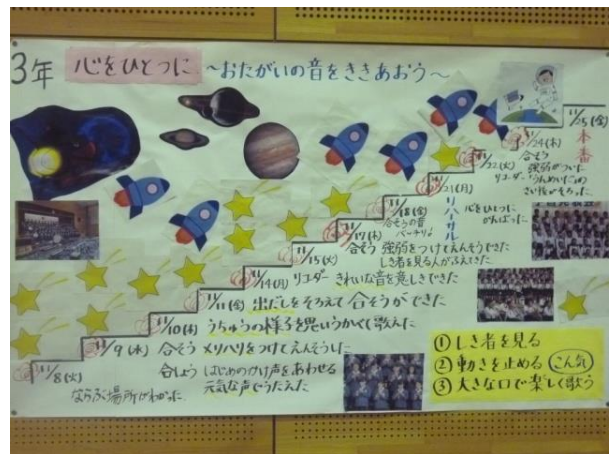 3年 心をひとつに ～おたがいの音をききあおう～
11/25(金)
本番
11/24(木)
合そう
強弱がついた
リコーダー
さい後がそろった
11/22(火)
11/21(月)
リハーサル
心をひとつに
がんばった
11/18(金)
合そうの音
バーチリ♪
11/17(木)
合そう 強弱をつけてえんそうできた
しき者を見る人がふえてきた
11/15(火)
リコーダー きれいな音を意しきできた
11/14(月)
11/11(金) 出だしをそろえて合そうができた
11/10(木) うちゅうの様子を思いうかべて歌えた
11/9(水) 合そう メリハリをつけてえんそうした
合しょう はじめのかけ声をあわせる
元気な声でうたえた
11/8(火)
ならぶ場所がわかった
① しき者を見る
② 動きを止める こん気
③ 大きな口で楽しく歌う